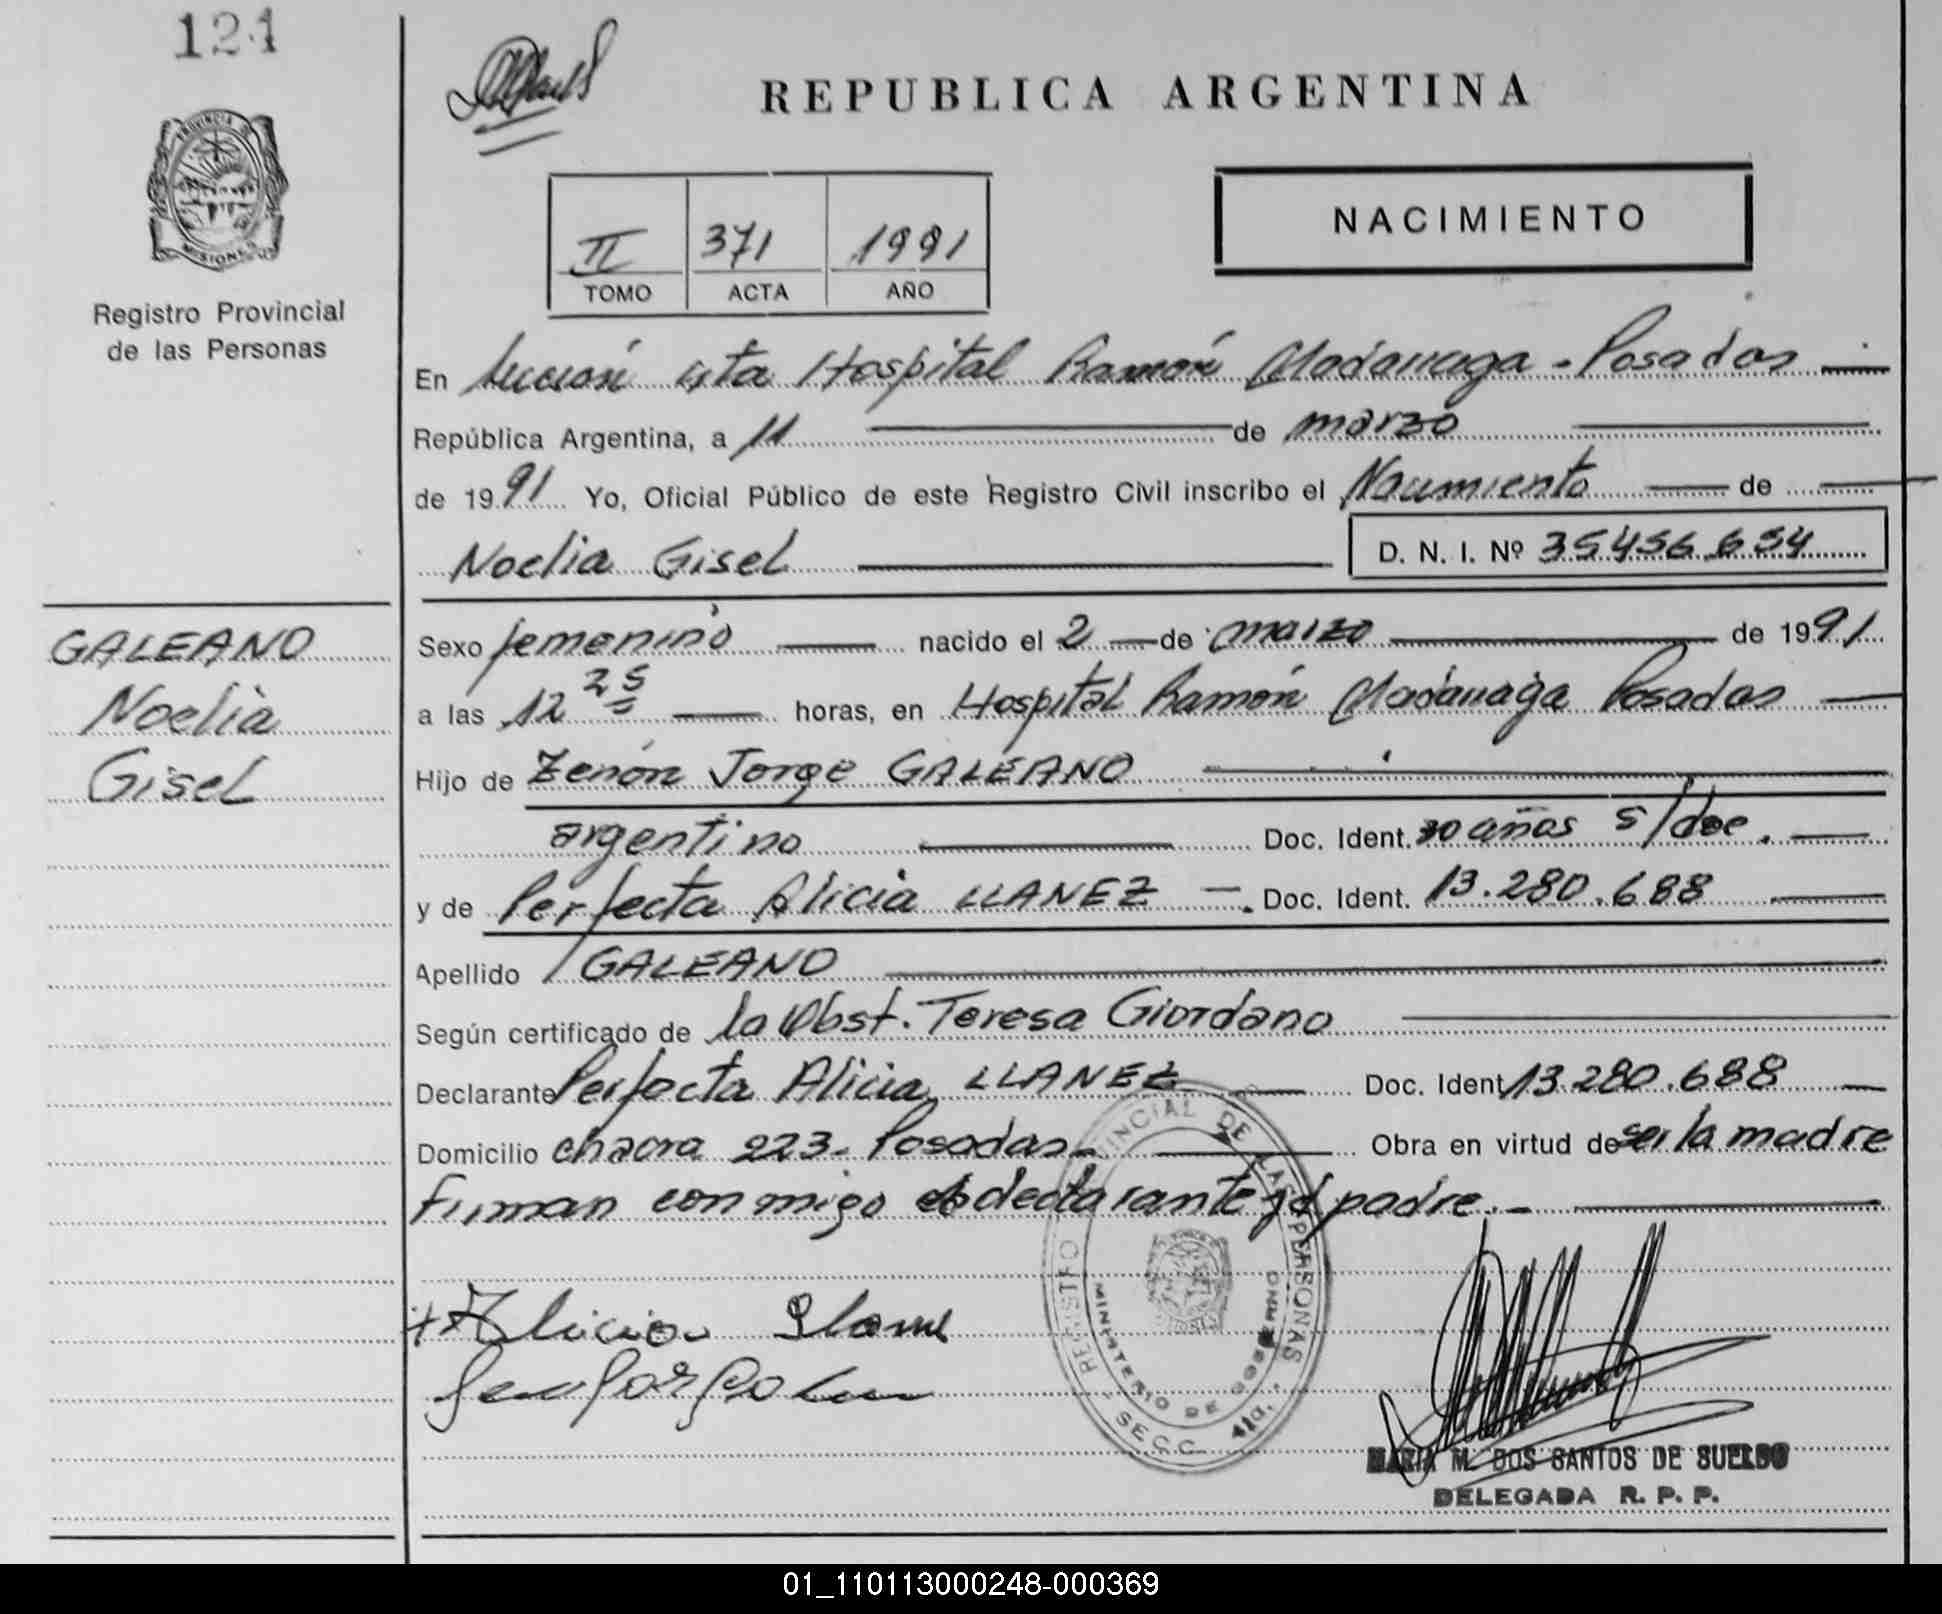 124
REPUBLICA ARGENTINA
PROVINCIA DE
MISIONES
Registro Provincial
de las Personas
II 371 1991
TOMO ACTA AÑO
NACIMIENTO
En Sección 4ta Hospital Ramón Madariaga - Posadas
República Argentina, a 11 de marzo
de 1991 Yo, Oficial Público de este Registro Civil inscribo el Nacimiento de
Noelia Gisel D. N. I. Nº 35456.654
GALEANO
Noelia
Gisel
Sexo femenino nacido el 2 de marzo de 1991
a las 12 25 horas, en Hospital Ramón Madariaga Posadas
Hijo de Zenón Jorge GALEANO
argentino Doc. Ident. 30 años s/doc.
y de Perfecta Alicia LLANEZ Doc. Ident. 13.280.688
Apellido GALEANO
Según certificado de la Obst. Teresa Giordano
Declarante Perfecta Alicia LLANEZ Doc. Ident 13.280.688
Domicilio chacra 223 - Posadas Obra en virtud de ser la madre
Firman conmigo declarante y el padre.-
Alicia
REGISTRO PROVINCIAL DE LAS PERSONAS
MINISTERIO DE GOBIERNO
SECC. 4ta.
MARIA M. DOS SANTOS DE SUELDO
DELEGADA R. P. P.
01_110113000248-000369